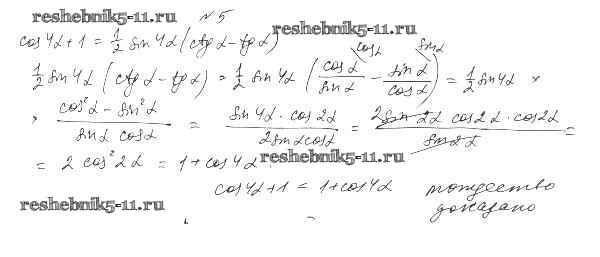 reshebnik5-11.ru
№5
reshebnik5-11.ru
cos4α+1 = 1/2 sin4α(ctgα-tgα)
1/2 sin4α(ctgα-tgα) = 1/2 sin4α (cosα/sinα - sinα/cosα) = 1/2 sin4α ×
× (cos²α - sin²α)/(sinα cosα) = (sin4α · cos2α)/(2sinαcosα) = (2sin2α cos2α · cos2α)/(sin2α) =
= 2cos²2α = 1+cos4α.
reshebnik5-11.ru
cos4α+1 = 1+cos4α тождество
доказано
reshebnik5-11.ru